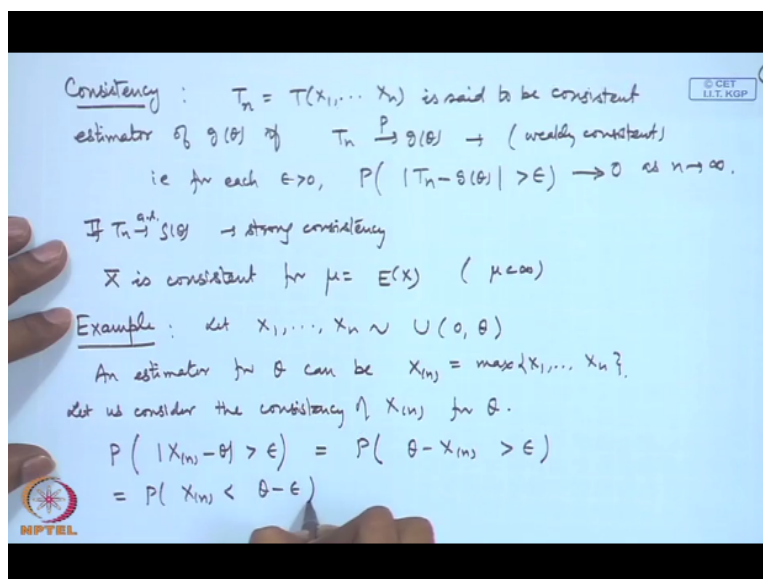 Consistency : Tn = T(X1,... Xn) is said to be consistent
© CET
I.I.T. KGP
estimator of g(θ) if Tn →P g(θ) → (weakly consistent)
ie for each ϵ>0, P( |Tn - g(θ)| >ϵ) → 0 as n→∞.
If Tn →a.s. g(θ) → strong consistency
X̄ is consistent for μ= E(X) ( μ<∞)
Example : Let X1,..., Xn ~ U(0, θ)
An estimator for θ can be X(n) = max{X1,... Xn}.
Let us consider the consistency of X(n) for θ.
P( |X(n) - θ| > ϵ) = P( θ - X(n) > ϵ)
= P( X(n) < θ - ϵ)
NPTEL